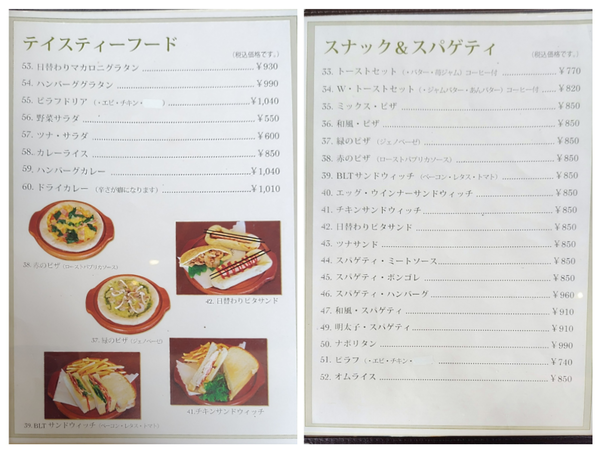 テイスティーフード
(税込価格です。)
53. 日替わりマカロニグラタン ¥930
54. ハンバーググラタン ¥990
55. ピラフドリア (・エビ・チキン・ ¥1,040
56. 野菜サラダ ¥550
57. ツナ・サラダ ¥600
58. カレーライス ¥850
59. ハンバーグカレー ¥1,040
60. ドライカレー (辛さが癖になります) ¥1,010
38. 赤のピザ (ローストパプリカソース)
42. 日替わりピタサンド
37. 緑のピザ (ジェノベーゼ)
41. チキンサンドウィッチ
39. BLTサンドウィッチ (ベーコン・レタス・トマト)
スナック&スパゲティ
(税込価格です。)
33. トーストセット (・バター・苺ジャム) コーヒー付 ¥770
34. W・トーストセット (・ジャムバター・あんバター) コーヒー付 ¥820
35. ミックス・ピザ ¥850
36. 和風・ピザ ¥850
37. 緑のピザ (ジェノベーゼ) ¥850
38. 赤のピザ (ローストパプリカソース) ¥850
39. BLTサンドウィッチ (ベーコン・レタス・トマト) ¥850
40. エッグ・ウインナーサンドウィッチ ¥850
41. チキンサンドウィッチ ¥850
42. 日替わりピタサンド ¥850
43. ツナサンド ¥850
44. スパゲティ・ミートソース ¥850
45. スパゲティ・ボンゴレ ¥850
46. スパゲティ・ハンバーグ ¥960
47. 和風・スパゲティ ¥910
49. 明太子・スパゲティ ¥910
50. ナポリタン ¥990
51. ピラフ (・エビ・チキン・ ¥740
52. オムライス ¥850